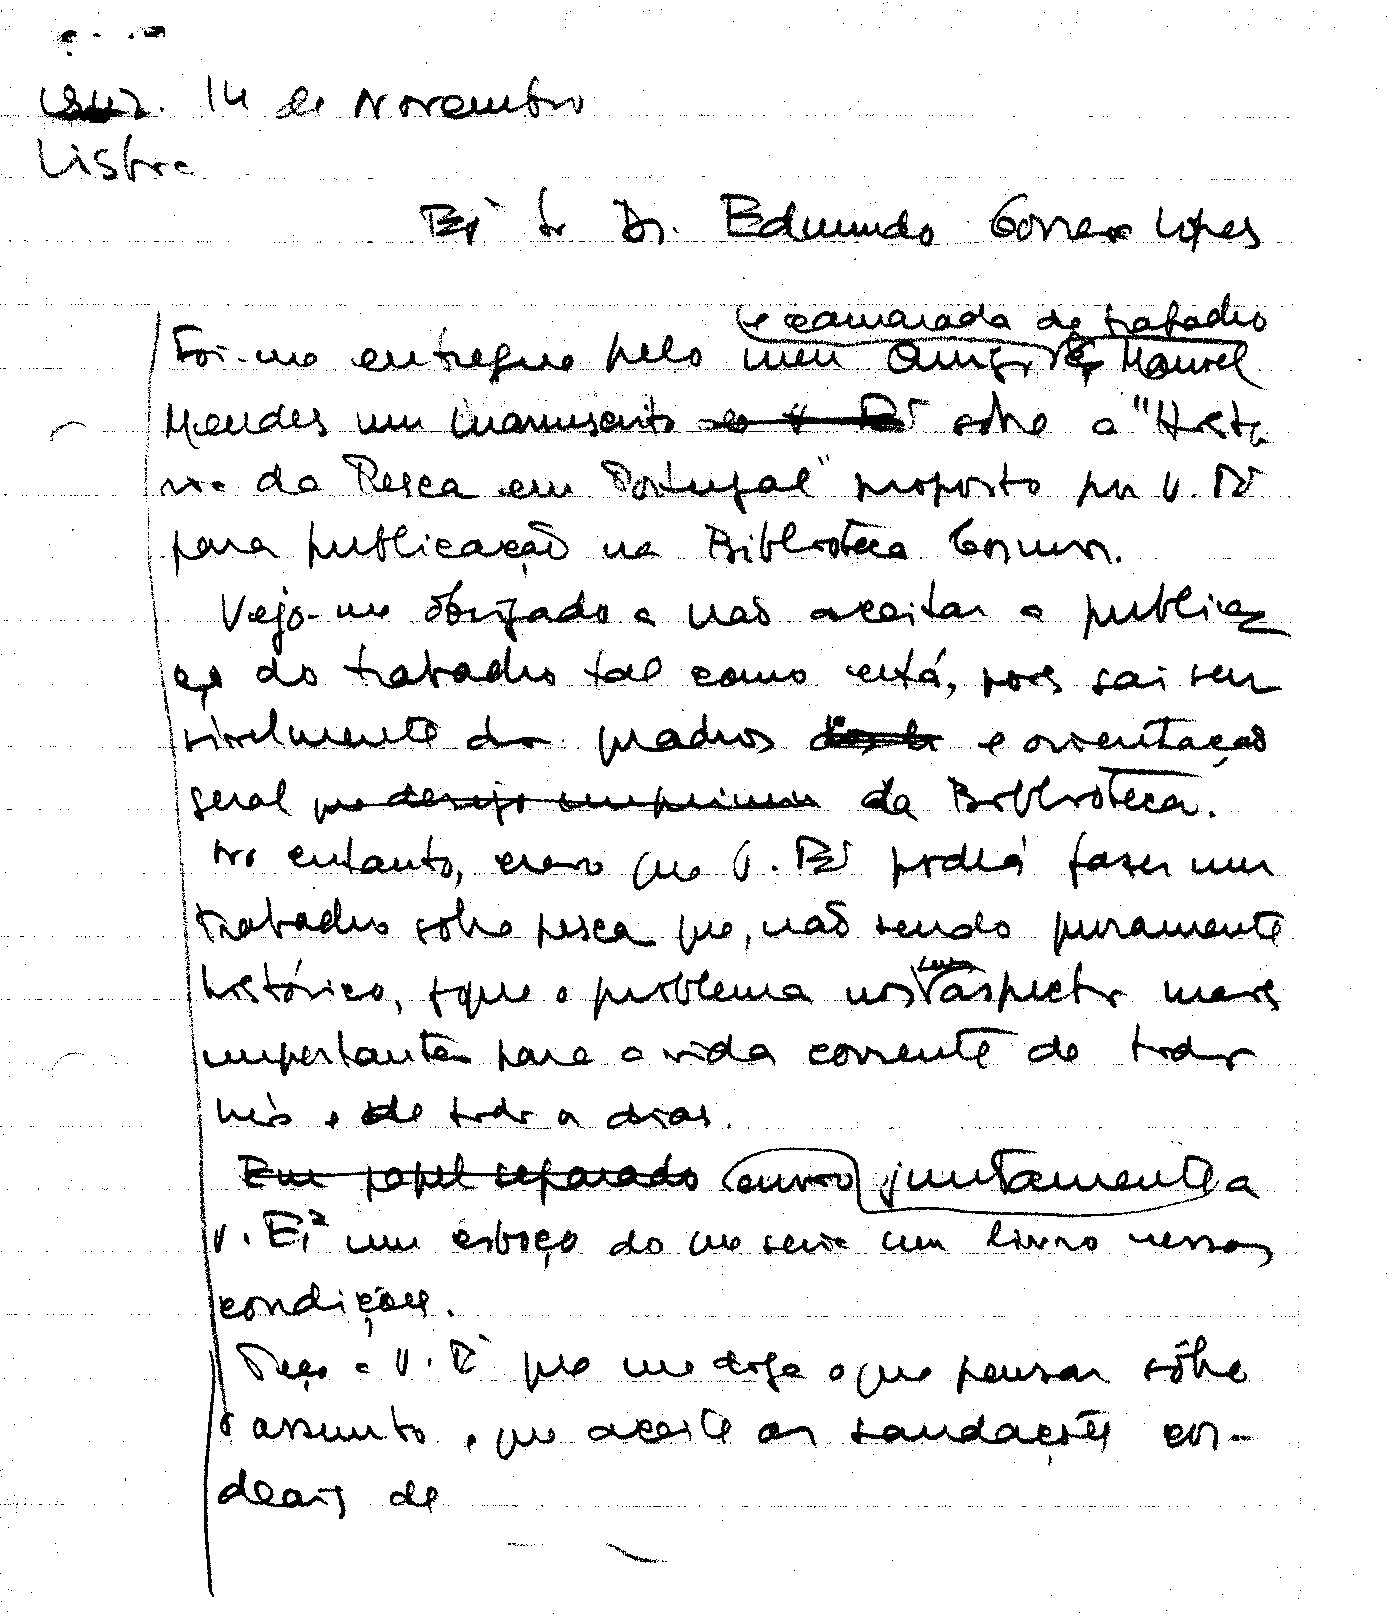 14 de Novembro
Lisboa
Exº Sr Dr. Edmundo Correia Lopes
e camarada de trabalho
Foi-me entregue pelo meu Amigo Manuel
Mendes um manuscrito sôbre a "Histó
ria da Pesca em Portugal" proposto por V. Exª
para publicação na Biblioteca Cosmos.
Vejo-me obrigado a não aceitar a publica
ção do trabalho tal como está, pois sai sen
sivelmente dos quadros e orientação
geral que desejo imprimir da Biblioteca.
No entanto, creio que V. Exª poderá fazer um
trabalho sôbre pesca que, não sendo puramente
histórico, foque o problema nos seus aspectos mais
importantes para a vida corrente de todos
nós e de todos os dias.
Em papel separado envio juntamente a
V. Exª um esboço do que seria um livro nessas
condições.
Peço a V. Exª que me diga o que pensar sôbre
o assunto, e que aceite as saudações cor-
deais de